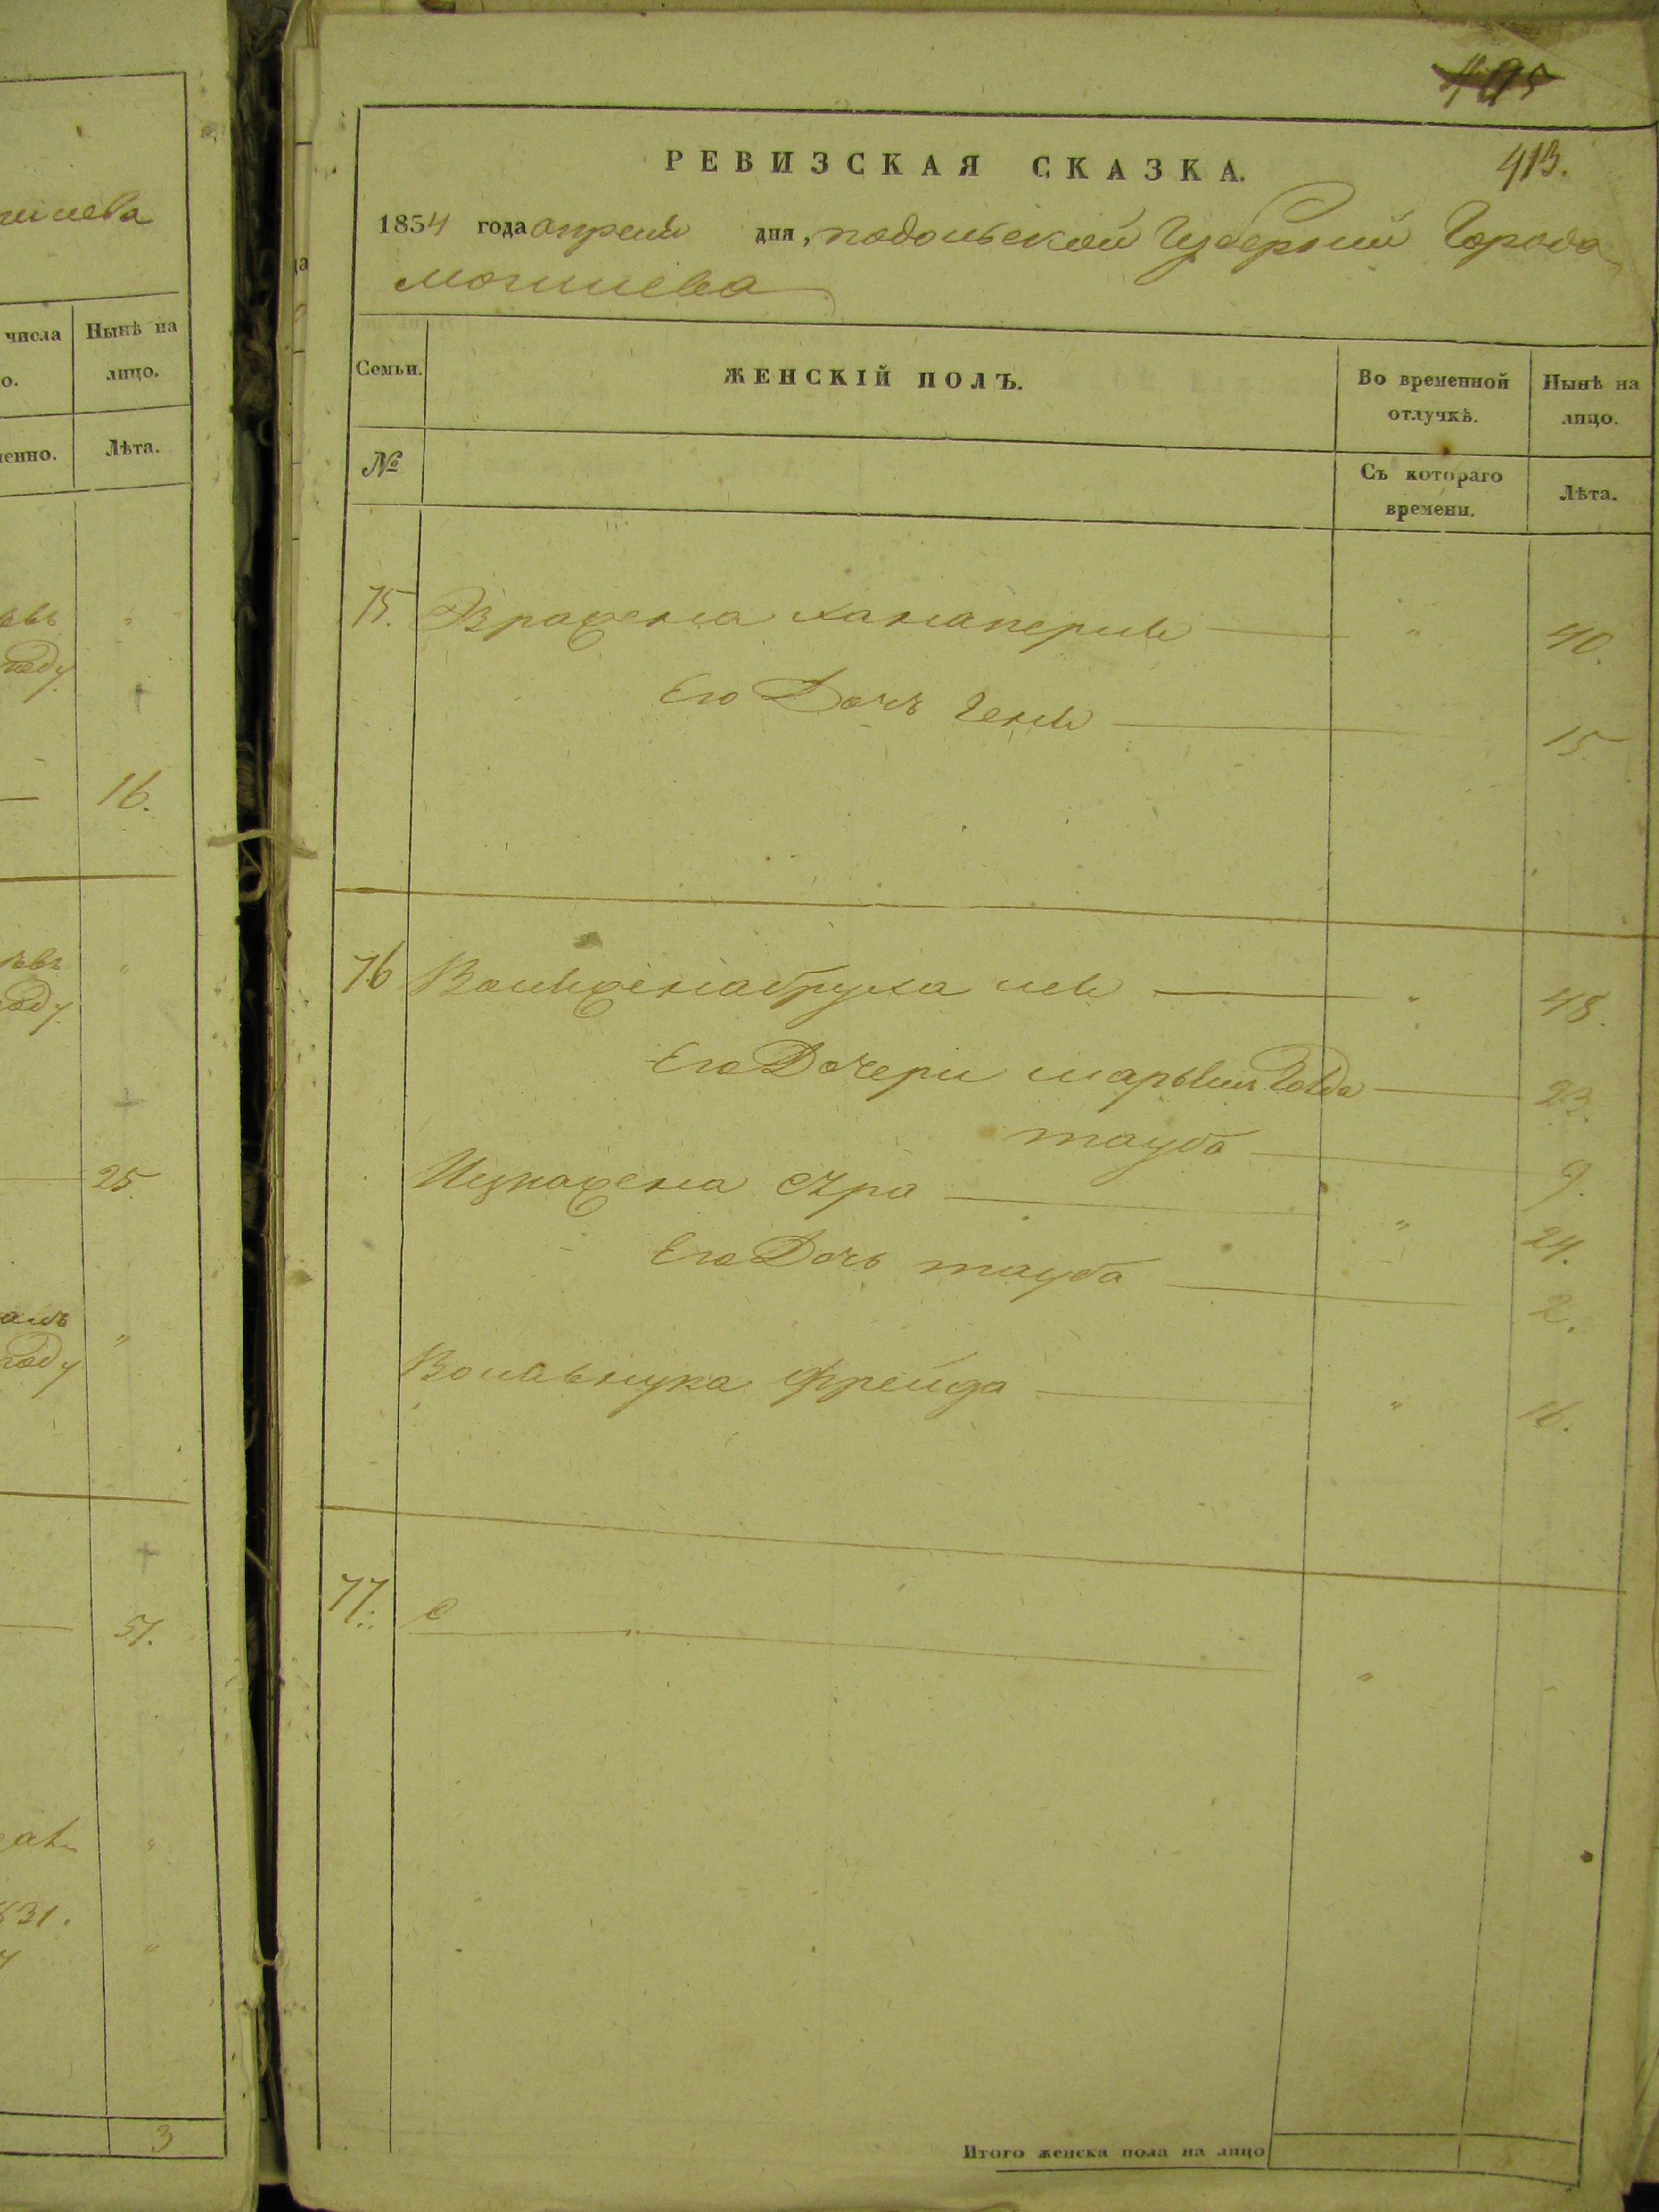 413.
РЕВИЗСКАЯ СКАЗКА.
1854 года апреля дня, подольской Губернии Города
могилева
числа Нынѣ на
о. лицо.
енно. Лѣта.
Семьи. ЖЕНСКІЙ ПОЛЪ. Во временной Нынѣ на
отлучкѣ. лицо.
№ Съ котораго Лѣта.
времени.
году
16.
году
25.
году
51.
831.
3
75. Зражена ханаперля " 40.
Его Дочь Геня 15
76 Вольфженабруха лея " 48.
Его Дочери марьям Голда 23.
тауба 9.
Ицкажена Сура " 24.
Его Дочь тауба 2.
Волавнука фрейда " 16.
77.
Итого женска пола на лицо